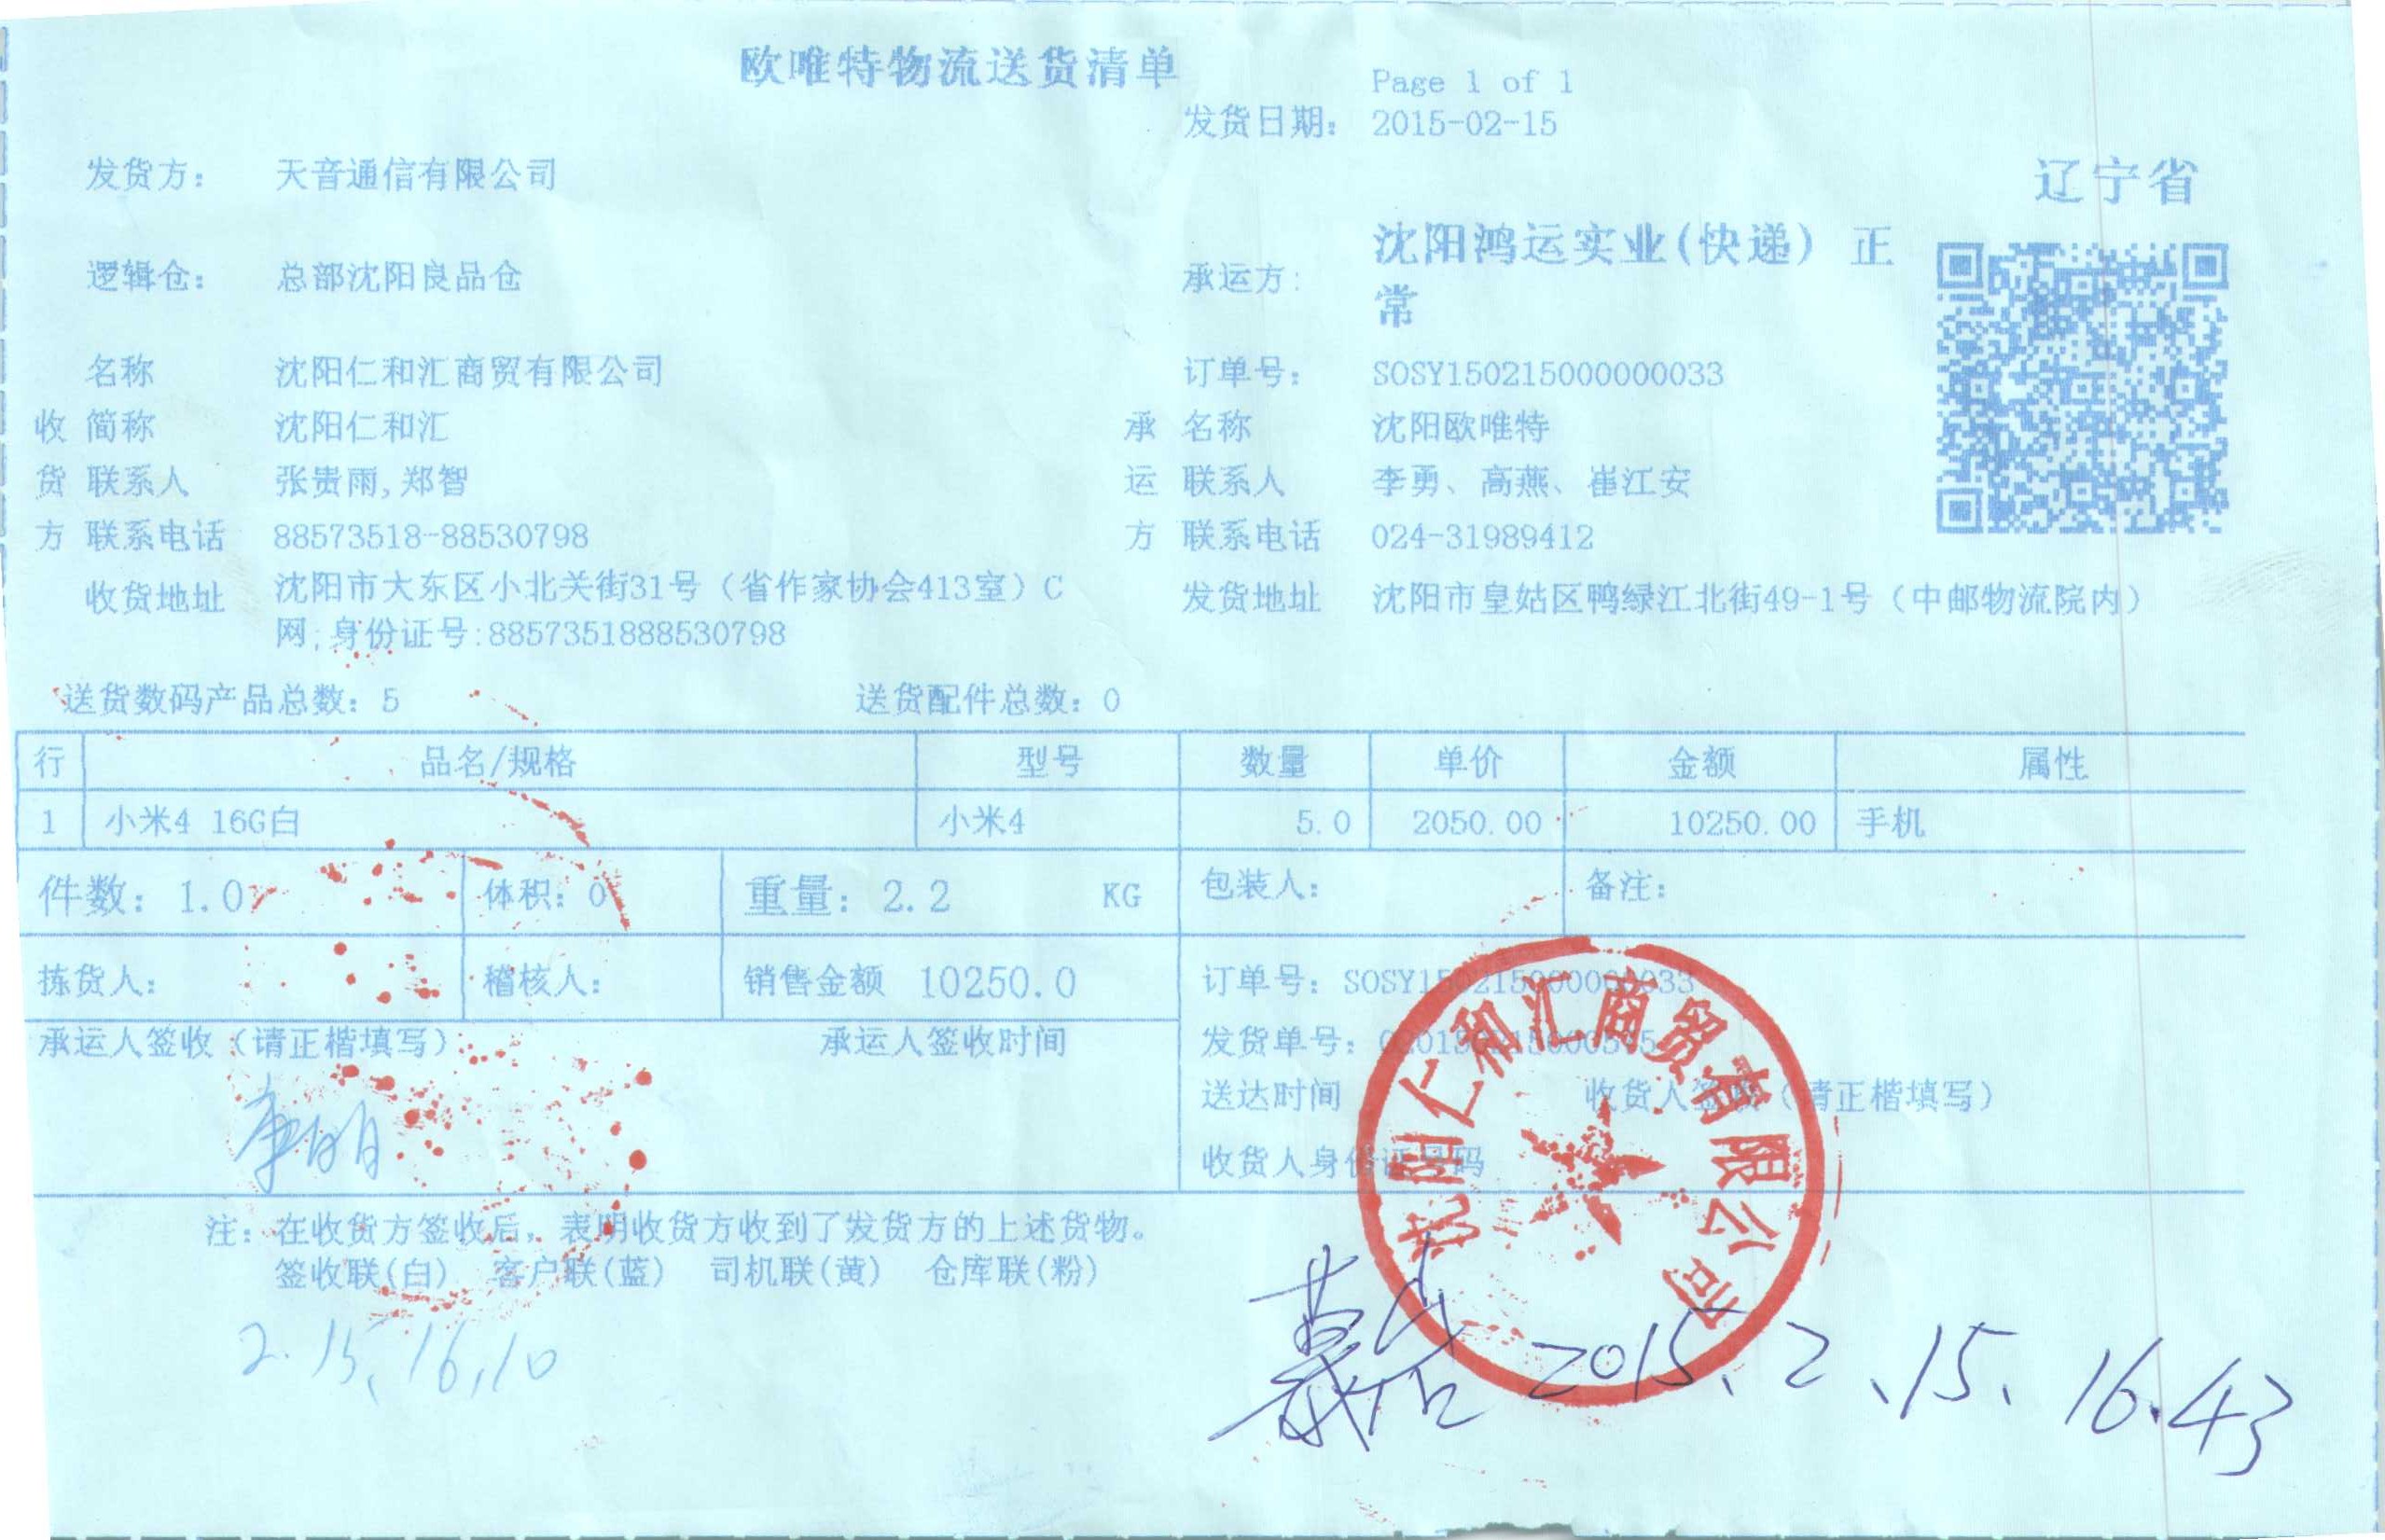 欧唯特物流送货清单
Page 1 of 1
发货日期: 2015-02-15
发货方: 天音通信有限公司
辽宁省
逻辑仓: 总部沈阳良品仓
承运方: 沈阳鸿运实业(快递) 正常
名称 沈阳仁和汇商贸有限公司
订单号: SOSY150215000000033
收 简称 沈阳仁和汇
承 名称 沈阳欧唯特
货 联系人 张贵雨,郑智
运 联系人 李勇、高燕、崔江安
方 联系电话 88573518-88530798
方 联系电话 024-31989412
收货地址 沈阳市大东区小北关街31号（省作家协会413室）C
网;身份证号:8857351888530798
发货地址 沈阳市皇姑区鸭绿江北街49-1号（中邮物流院内）
送货数码产品总数: 5 送货配件总数: 0
行 品名/规格 型号 数量 单价 金额 属性
1 小米4 16G白 小米4 5.0 2050.00 10250.00 手机
件数: 1.0 体积: 0 重量: 2.2 KG 包装人: 备注:
拣货人: 稽核人: 销售金额 10250.0 订单号: SOSY150215000000033
承运人签收（请正楷填写） 承运人签收时间
发货单号:
送达时间 收货人签收（请正楷填写）
收货人身份证号码
沈阳仁和汇商贸有限公司
注: 在收货方签收后，表明收货方收到了发货方的上述货物。
签收联(白) 客户联(蓝) 司机联(黄) 仓库联(粉)
2.15,16,10
2015、2、15、16.43